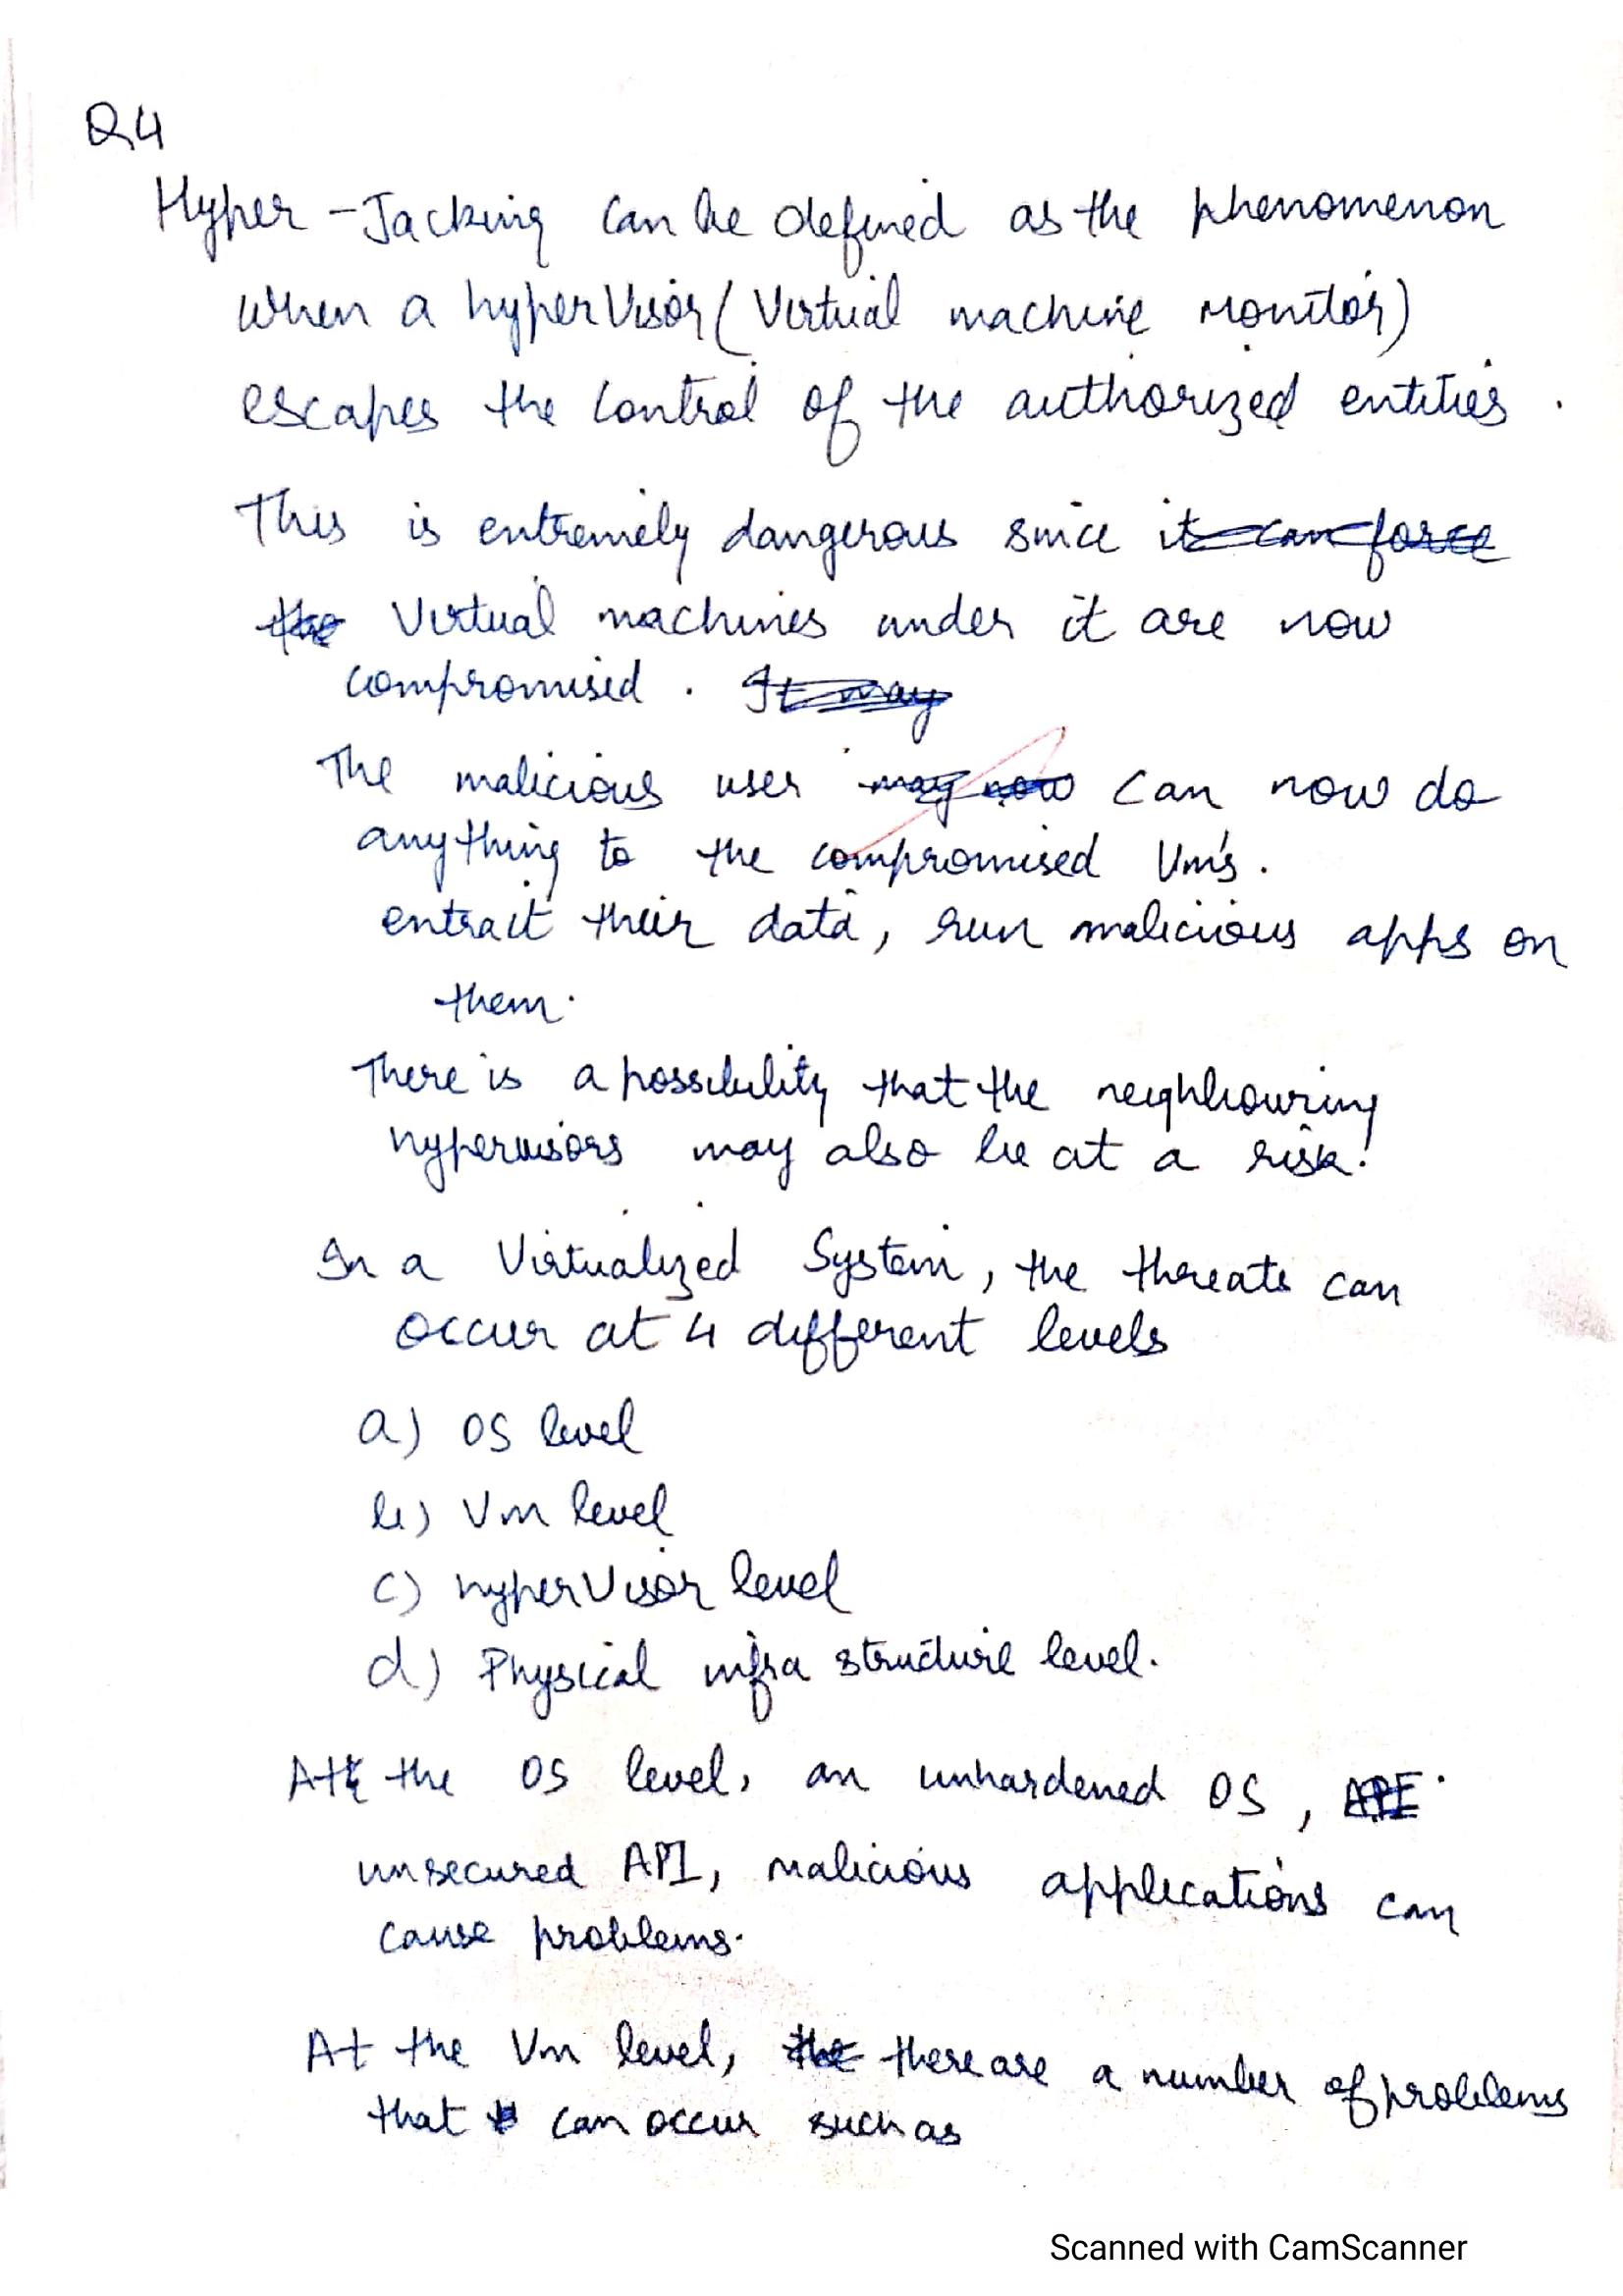 Q4
Hyper-Jacking can be defined as the phenomenon
when a hyperVisor (Virtual machine Monitor)
escapes the control of the authorized entities.
This is extremely dangerous since it can force
the Virtual machines under it are now
compromised. It may
The malicious user may now can now do
anything to the compromised Vm's.
extract their data, run malicious apps on
them.
There is a possibility that the neighbouring
hypervisors may also be at a risk!
In a Virtualized System, the threats can
occur at 4 different levels
a) OS level
b) Vm level
c) hyperVisor level
d) Physical infra structure level.
At the OS level, an unhardened OS, API
unsecured API, malicious applications can
cause problems.
At the Vm level, the there are a number of problems
that can occur such as
Scanned with CamScanner